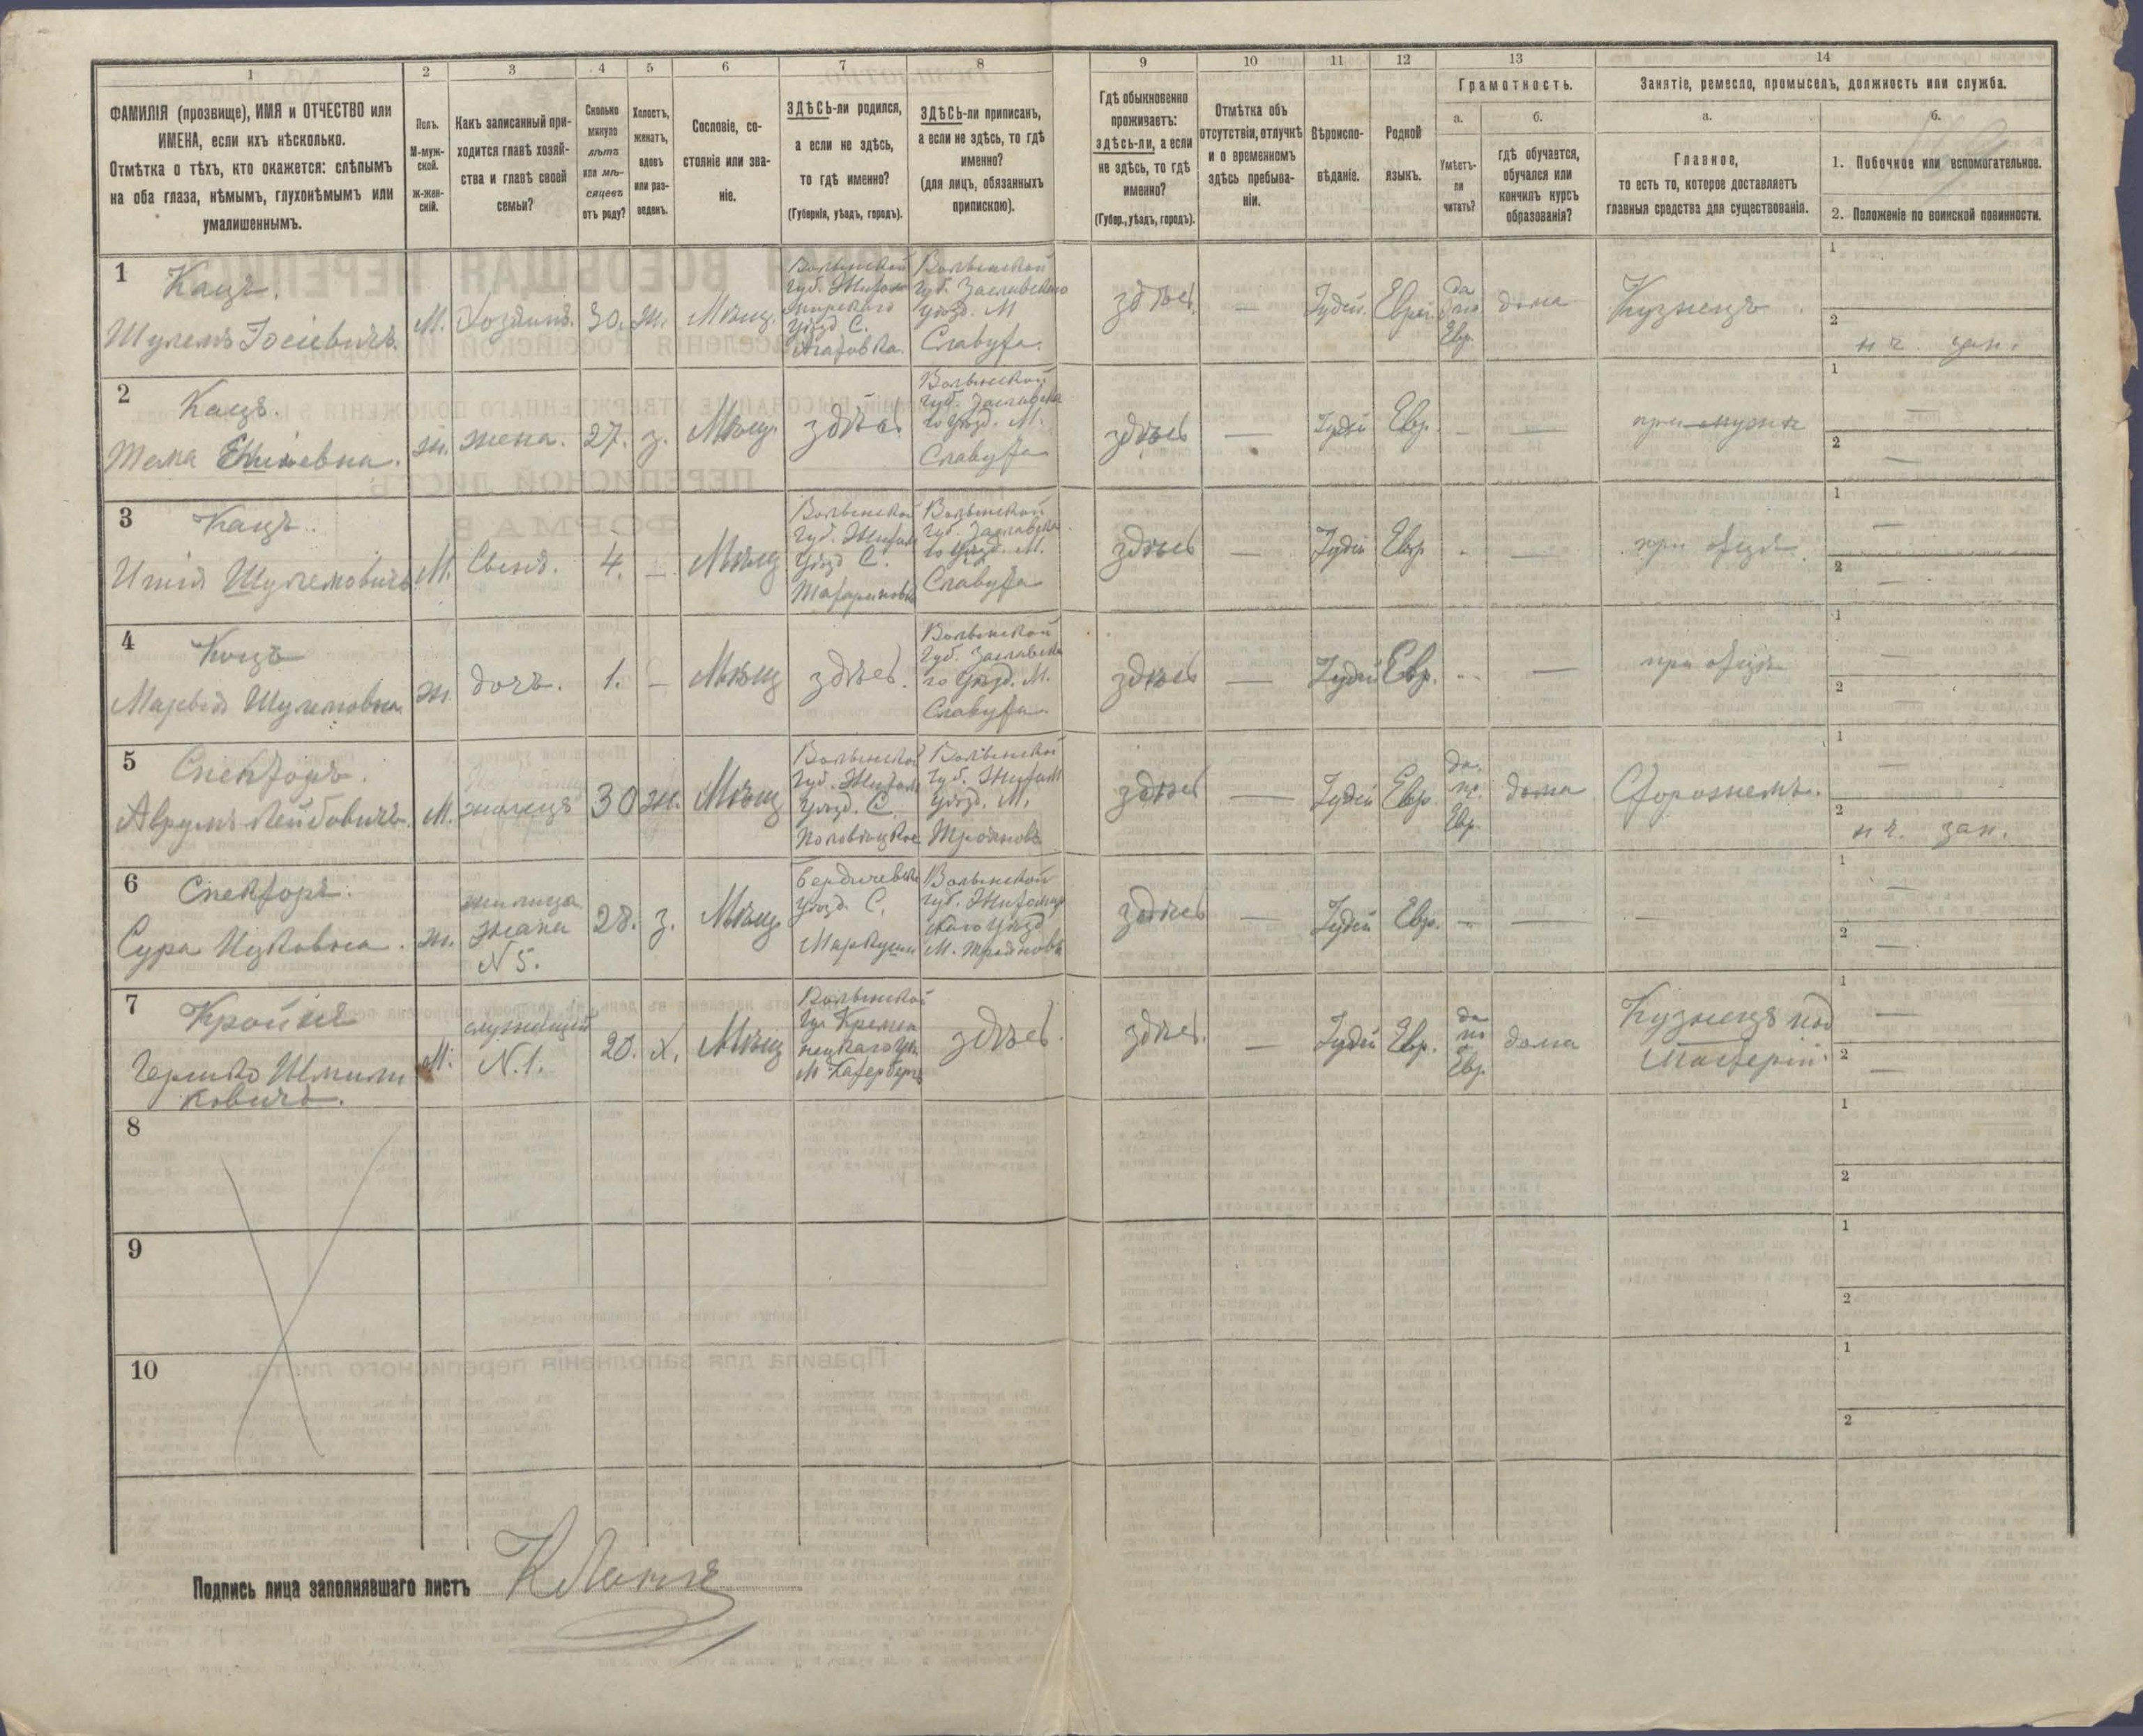 1
2
3
4
5
6
7
8
9
10
11
12
13
14
ФАМИЛІЯ (прозвище), ИМЯ и ОТЧЕСТВО или
ИМЕНА, если ихъ нѣсколько.
Отмѣтка о тѣхъ, кто окажется: слѣпымъ
на оба глаза, нѣмымъ, глухонѣмымъ или
умалишеннымъ.
Полъ.
М-муж-
ской.
Ж-жен-
скій.
Какъ записанный при-
ходится главѣ хозяй-
ства и главѣ своей
семьи?
Сколько
минуло
лѣтъ
или мѣ-
сяцевъ
отъ роду?
Холостъ,
женатъ,
вдовъ
или раз-
веденъ.
Сословіе, со-
стояніе или зва-
ніе.
ЗДѢСЬ-ли родился,
а если не здѣсь,
то гдѣ именно?
(Губернія, уѣздъ, городъ).
ЗДѢСЬ-ли приписанъ,
а если не здѣсь, то гдѣ
именно?
(для лицъ, обязанныхъ
припискою).
Гдѣ обыкновенно
проживаетъ:
здѣсь-ли, а если
не здѣсь, то гдѣ
именно?
(Губер., уѣздъ, городъ).
Отмѣтка объ
отсутствіи, отлучкѣ
и о временномъ
здѣсь пребыва-
ніи.
Вѣроиспо-
вѣданіе.
Родной
языкъ.
Грамотность.
а.
Умѣетъ-
ли
читать?
б.
гдѣ обучается,
обучался или
кончилъ курсъ
образованія?
Занятіе, ремесло, промыселъ, должность или служба.
а.
Главное,
то есть то, которое доставляетъ
главныя средства для существованія.
б.
1. Побочное или вспомогательное.
2. Положеніе по воинской повинности.
1
Кацъ.
Шулемъ Іосіевичъ.
М.
Хозяинъ.
30.
ж.
Мѣщ.
Волынской
губ. Житом
мирскаго
уѣзд С.
Волынской
губ. Заславскаго
уѣзд. М
Славута.
здѣсь
—
Іудей.
Еврей
да
по
Евр.
дома
Кузнецъ.
1
2
нч. зап.
2
Кацъ.
ж.
жена.
27.
з.
Мѣщ.
здѣсь.
Волынской
губ. Заславска
го уѣзд. М.
Славута
здѣсь
—
Іудей
Евр.
—
—
при мужѣ
1
—
2
—
3
Кацъ.
Шулемовичъ
М.
Сынъ.
4.
—
Мѣщ
Волынской
губ. Житом
уѣзд С.
Волынской
губ. Заславска
го уѣзд. М.
Славута
здѣсь
—
Іудей
Евр
-
—
при отцѣ.
1
—
2
—
4
Кацъ
Шулемовна
ж.
дочь.
1.
—
Мѣщ
здѣсь.
Волынской
губ. Заславска
го уѣзд. М.
Славута
здѣсь
—
Іудей
Евр.
-
—
при отцѣ
1
—
2
5
Спекторъ.
Аврумъ Лейбовичъ.
М.
жилецъ
30
ж.
Мѣщ
Волынской
губ. Житом
уѣзд. С.
Волынской
губ. Житом
уѣзд. М.
Трояновъ
здѣсь
—
Іудей
Евр.
да.
по.
Евр.
дома
1
—
2
нч. зап.
6
Спекторъ.
Сура Ицковна.
ж.
жилица
жена
N 5.
28.
з.
Мѣщ
Бердичевск
уѣзд. С.
Маркуши
Волынской
губ. Житомир
скаго уѣзд
М. Трояновъ
здѣсь
—
Іудей
Евр.
—
—
—
1
—
2
—
7
Кройня
Гершко Шмиль
ковичъ.
М.
служащій
N. 1.
20.
х.
Мѣщ
Волынской
Гу. Кремен
нецкаго уѣ.
здѣсь.
здѣсь.
—
Іудей
Евр.
да
по
Евр
дома
Кузнецъ под
мастерій.
1
—
2
—
8
1
2
9
1
2
10
1
2
Подпись лица заполнявшаго листъ